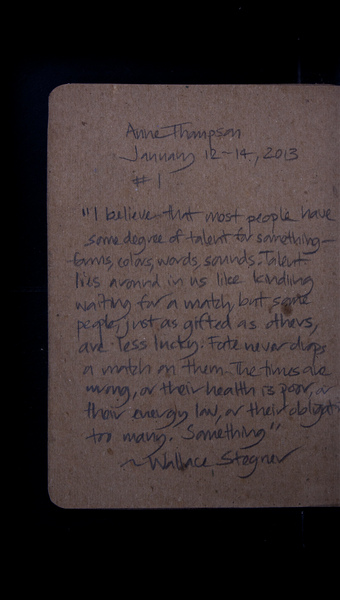 Anne Thompson
January 12-14, 2013
#1
"I believe that most people have
some degree of talent for something—
forms, colors, words, sounds. Talent
lies around in us like kindling
waiting for a match, but some
people, just as gifted as others,
are less lucky. Fate never drops
a match on them. The times are
wrong, or their health is poor, or
their energy law, or their obligati
too many. Something"
~ Wallace Stegner